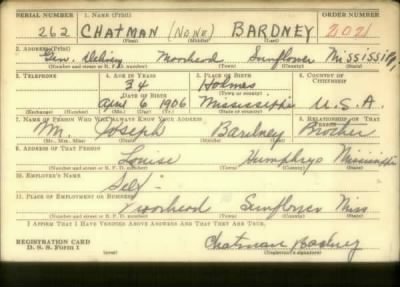 SERIAL NUMBER 1. NAME (Print) ORDER NUMBER
262 CHATMAN (NONE) BARDNEY 2021
(First) (Middle) (Last)
2. ADDRESS (Print)
Gen. Delivery Moorhead Sunflower Mississippi
(Number and street or R. F. D. number) (Town) (County) (State)
3. TELEPHONE 4. AGE IN YEARS 5. PLACE OF BIRTH 6. COUNTRY OF CITIZENSHIP
34 Holmes
DATE OF BIRTH (Town or county)
April 6 1906 Mississippi U.S.A.
(Exchange) (Number) (Mo.) (Day) (Yr.) (State or country)
7. NAME OF PERSON WHO WILL ALWAYS KNOW YOUR ADDRESS 8. RELATIONSHIP OF THAT PERSON
Mr. Joseph Bardney Brother
(Mr., Mrs., Miss) (First) (Middle) (Last)
9. ADDRESS OF THAT PERSON
Louise Humphrys Mississippi
(Number and street or R. F. D. number) (Town) (County) (State)
10. EMPLOYER'S NAME
Self
11. PLACE OF EMPLOYMENT OR BUSINESS
Moorhead Sunflower Miss
(Number and street or R. F. D. number) (Town) (County) (State)
I AFFIRM THAT I HAVE VERIFIED ABOVE ANSWERS AND THAT THEY ARE TRUE.
REGISTRATION CARD
D. S. S. Form 1 (over) Chatman Bardney
(Registrant's signature)